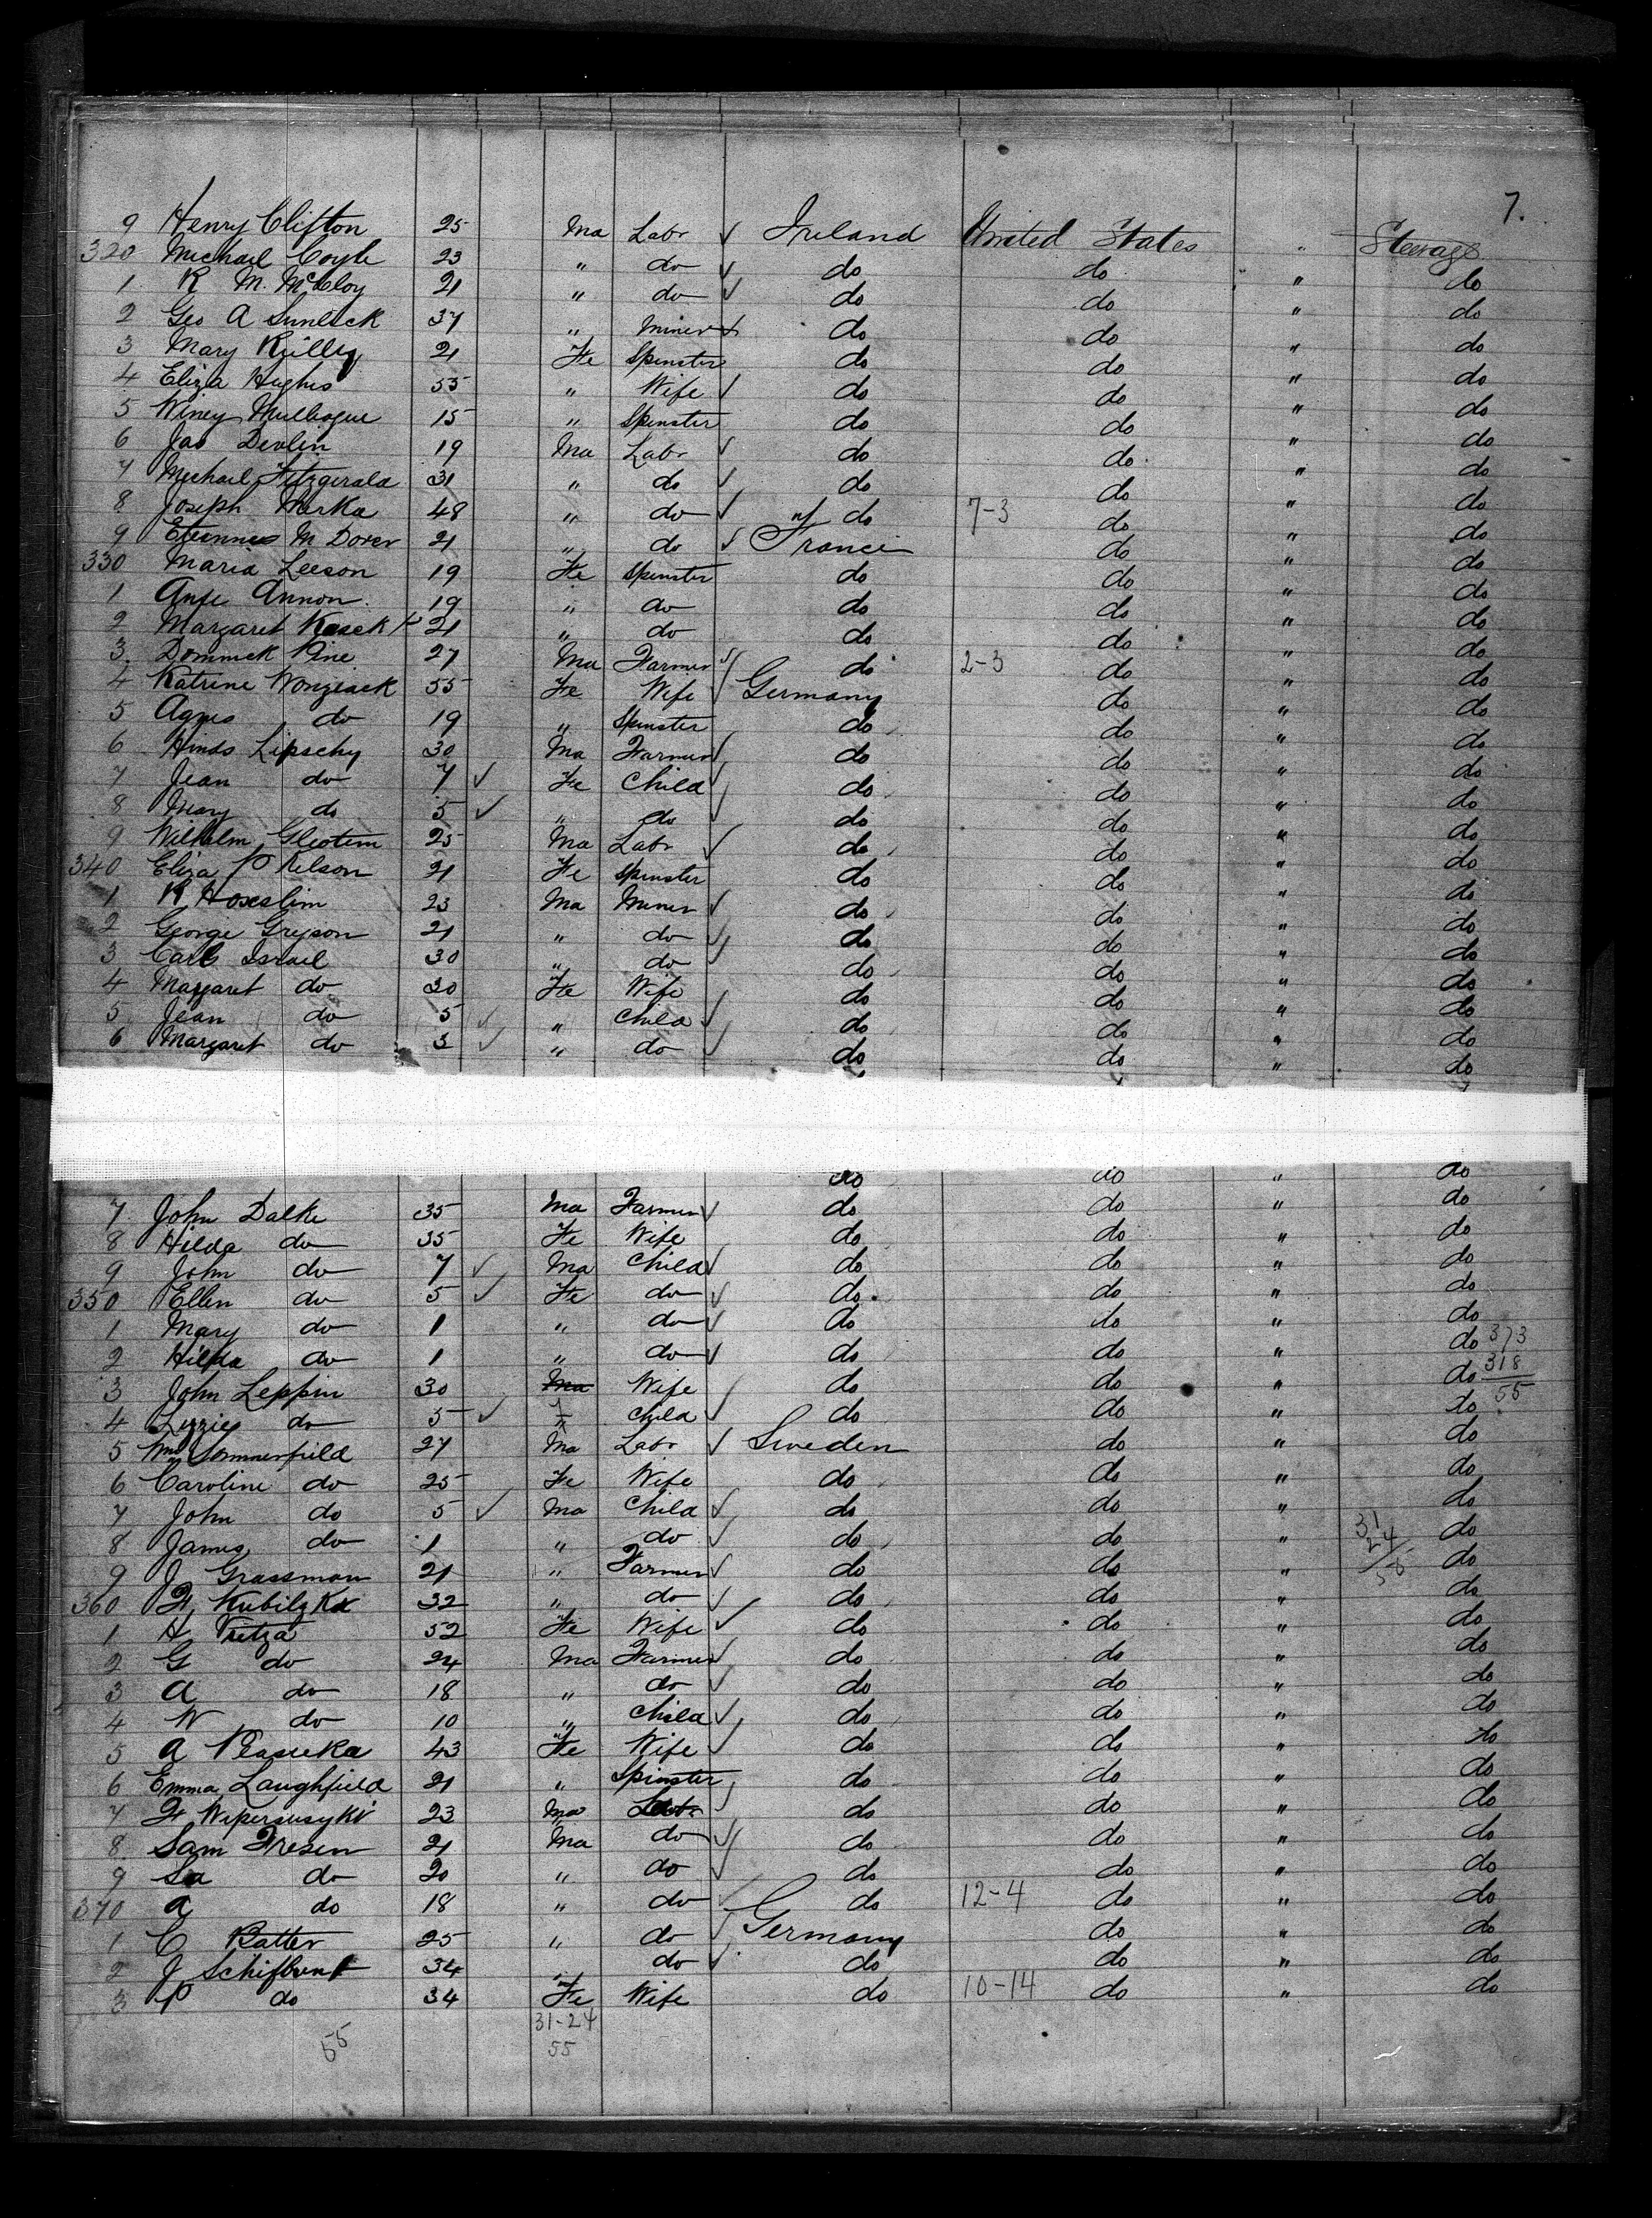 7.
9 Henry Clifton 25 Ma Labr ✓ Ireland United States " Steerage
320 Michael Coyle 23 " do ✓ do do " do
1 R M McCloy 21 " do ✓ do do " do
2 Geo A Sunlack 37 " Miner ✓ do do " do
3 Mary Reilly 21 Fe Spinster do do " do
4 Eliza Hughes 55 " Wife ✓ do do " do
5 Winey 15 " Spinster do do " do
6 Jas Devlin 19 Ma Labr ✓ do do " do
7 Michael Fitzgerald 31 " do ✓ do do " do
8 Joseph Marka 48 " do ✓ do 7-3 do " do
9 M Dorer 21 " do ✓ France do " do
330 Maria Leeson 19 Fe Spinster do do " do
1 Annon 19 " do do do " do
2 Margaret 21 " do do do " do
3 Dominick Pine 27 Ma Farmer ✓ do 2-3 do " do
4 Katrine Wonzeack 55 Fe Wife ✓ Germany do " do
5 Agnes do 19 " Spinster do do " do
6 Hinds Lipschy 30 Ma Farmer ✓ do do " do
7 Jean do 7 ✓ Fe Child ✓ do do " do
8 Mary do 5 ✓ " do ✓ do do " do
9 Wilhelm 25 Ma Labr ✓ do do " do
340 Eliza P Kelson 21 Fe Spinster do do " do
1 R Hoxslim 23 Ma Miner ✓ do do " do
2 George Grejson 21 " do ✓ do do " do
3 Carl Israel 30 " do do do " do
4 Margaret do 30 Fe Wife do do " do
5 Jean do 5 ✓ " Child ✓ do do " do
6 Margaret do 3 ✓ " do ✓ do do " do
do do " do
7 John Dalke 35 Ma Farmer ✓ do do " do
8 Hilda do 35 Fe Wife do do " do
9 John do 7 ✓ Ma Child ✓ do do " do
350 Ellen do 5 ✓ Fe do ✓ do do " do
1 Mary do 1 " do ✓ do do " do
2 Hilda do 1 " do ✓ do do " do 373
3 John Leppin 30 Ma Wife do do " do 318
4 Lizzie do 5 ✓ " Child ✓ do do " do 55
5 Wm Sommerfield 27 Ma Labr ✓ Sweden do " do
6 Caroline do 25 Fe Wife do do " do
7 John do 5 ✓ Ma Child ✓ do do " do
8 James do 1 " do ✓ do do " 31 do
9 J Grassman 21 " Farmer ✓ do do " 24 do
360 F Kubilzka 32 " do ✓ do do " 55 do
1 H Tietza 52 Fe Wife ✓ do do " do
2 G do 24 Ma Farmer ✓ do do " do
3 A do 18 " do ✓ do do " do
4 W do 10 " Child ✓ do do " do
5 A 43 Fe Wife ✓ do do " do
6 Emma Laughfield 21 " Spinster do do " do
7 F 23 Ma Labr do do " do
8 Sam Fresen 21 Ma do ✓ do do " do
9 Sa do 20 " do ✓ do do " do
370 A do 18 " do ✓ do 12-4 do " do
1 C Batter 25 " do ✓ Germany do " do
2 J 34 " do ✓ do do " do
3 P do 34 Fe Wife do 10-14 do " do
31-24
55 55